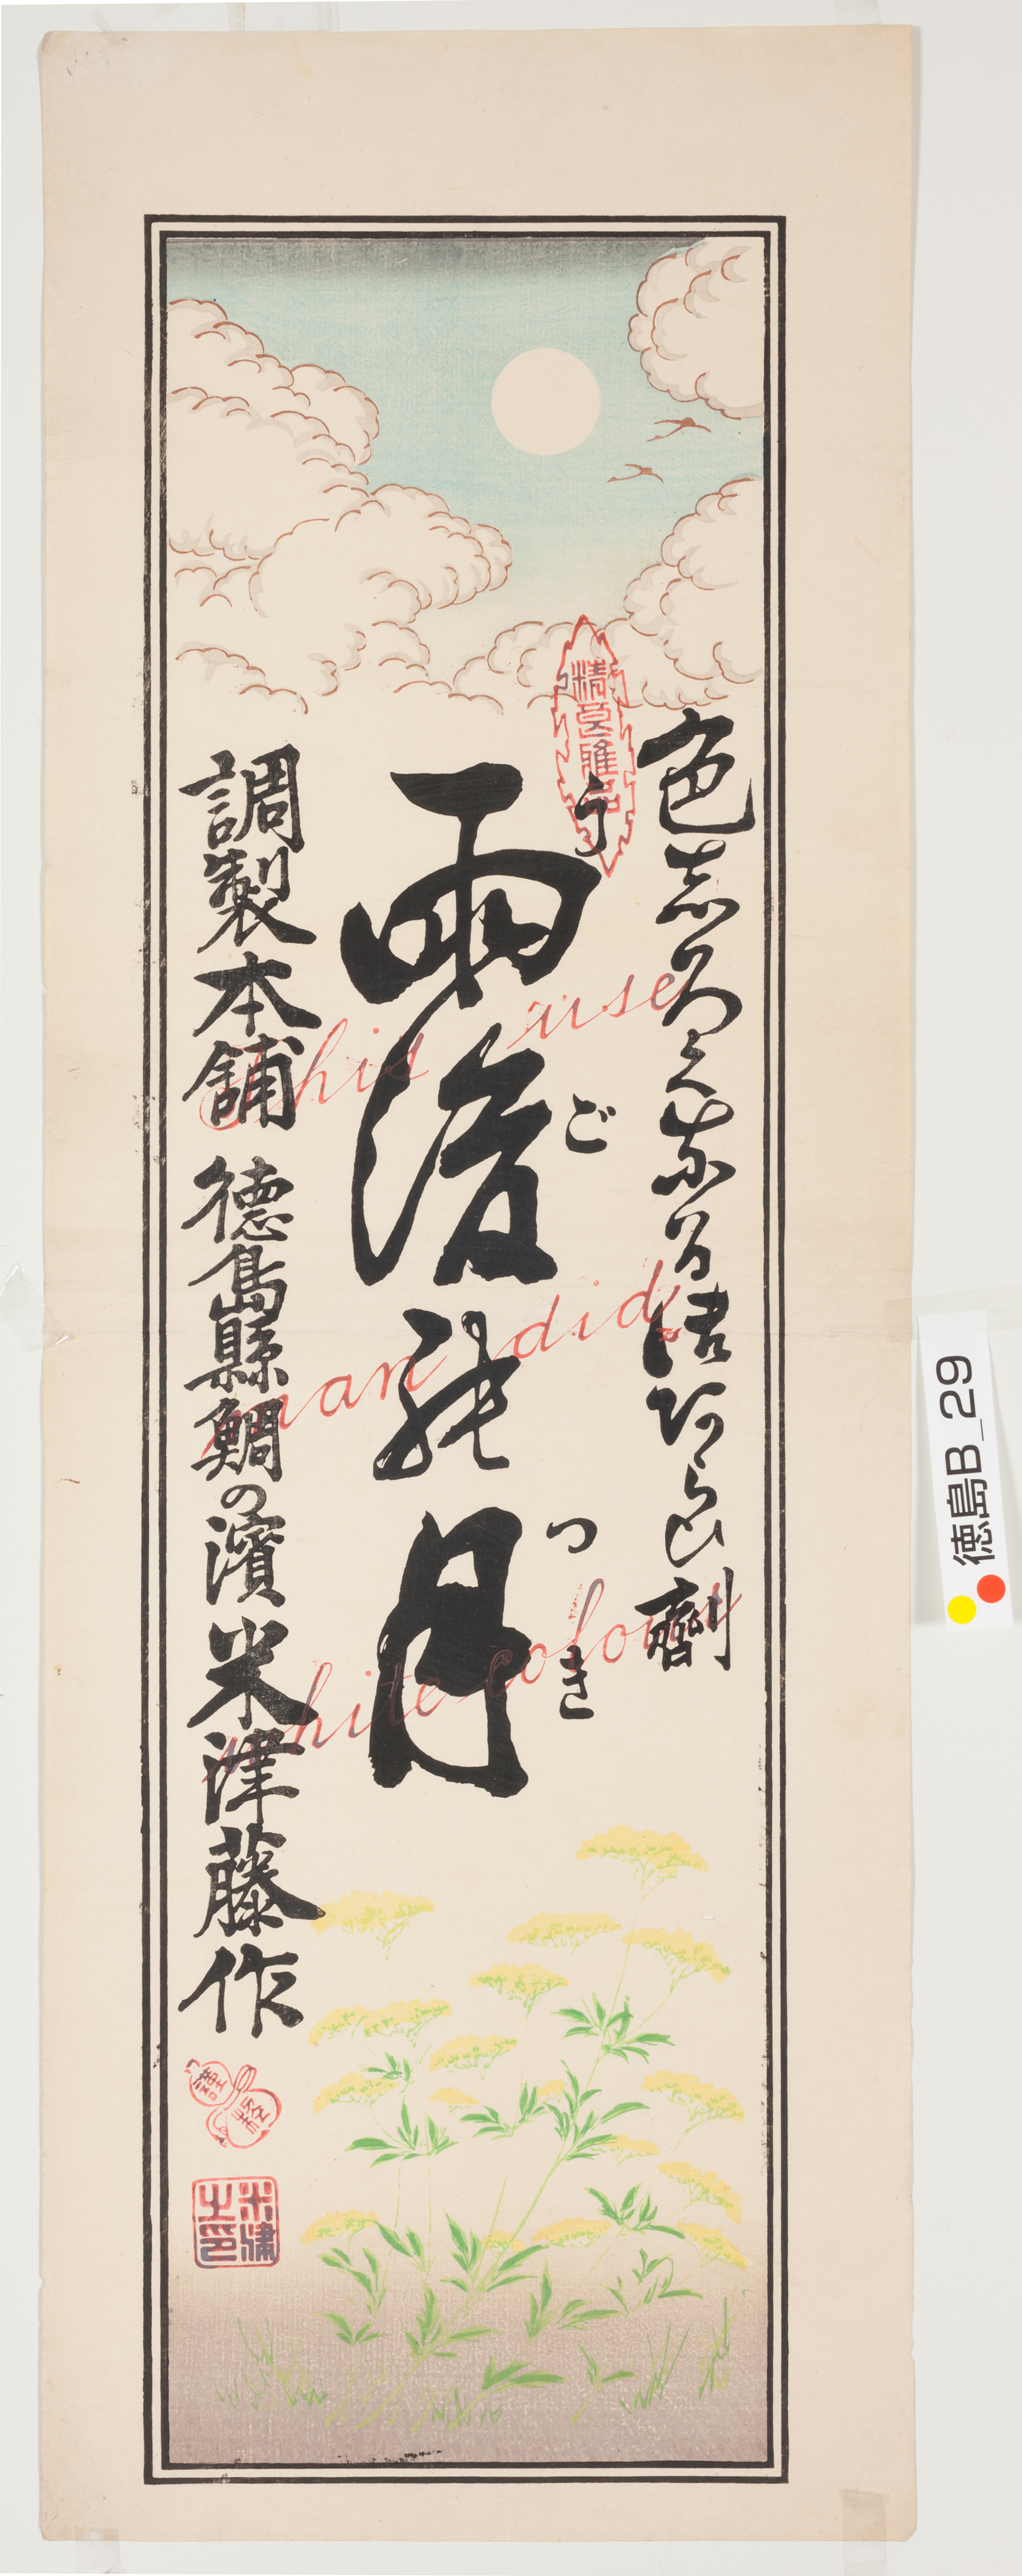 精良雅品
色志ろくなる洗あらひ劑
雨後能月
う
ご
つき
調製本舗 德島縣鯛の濱 米津藤作
This use
man did
white colour
徳島B_29